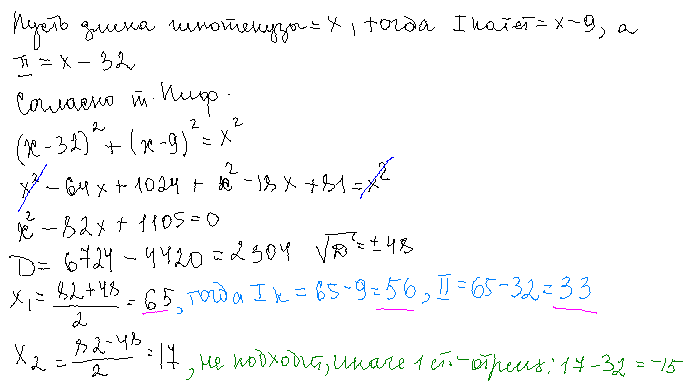 Пусть длина гипотенузы = x, тогда I катет = x-9, а
II = x - 32
Согласно т. Пиф.
(x-32)² + (x-9)² = x²
x² - 64x + 1024 + x² - 18x + 81 = x²
x² - 82x + 1105 = 0
D = 6724 - 4420 = 2304 √D = ± 48
x₁ = (82+48)/2 = 65, тогда I к = 65-9 = 56, II = 65-32 = 33
x₂ = (82-48)/2 = 17, не подходит, иначе 1 ст.-отриц: 17-32 = -15